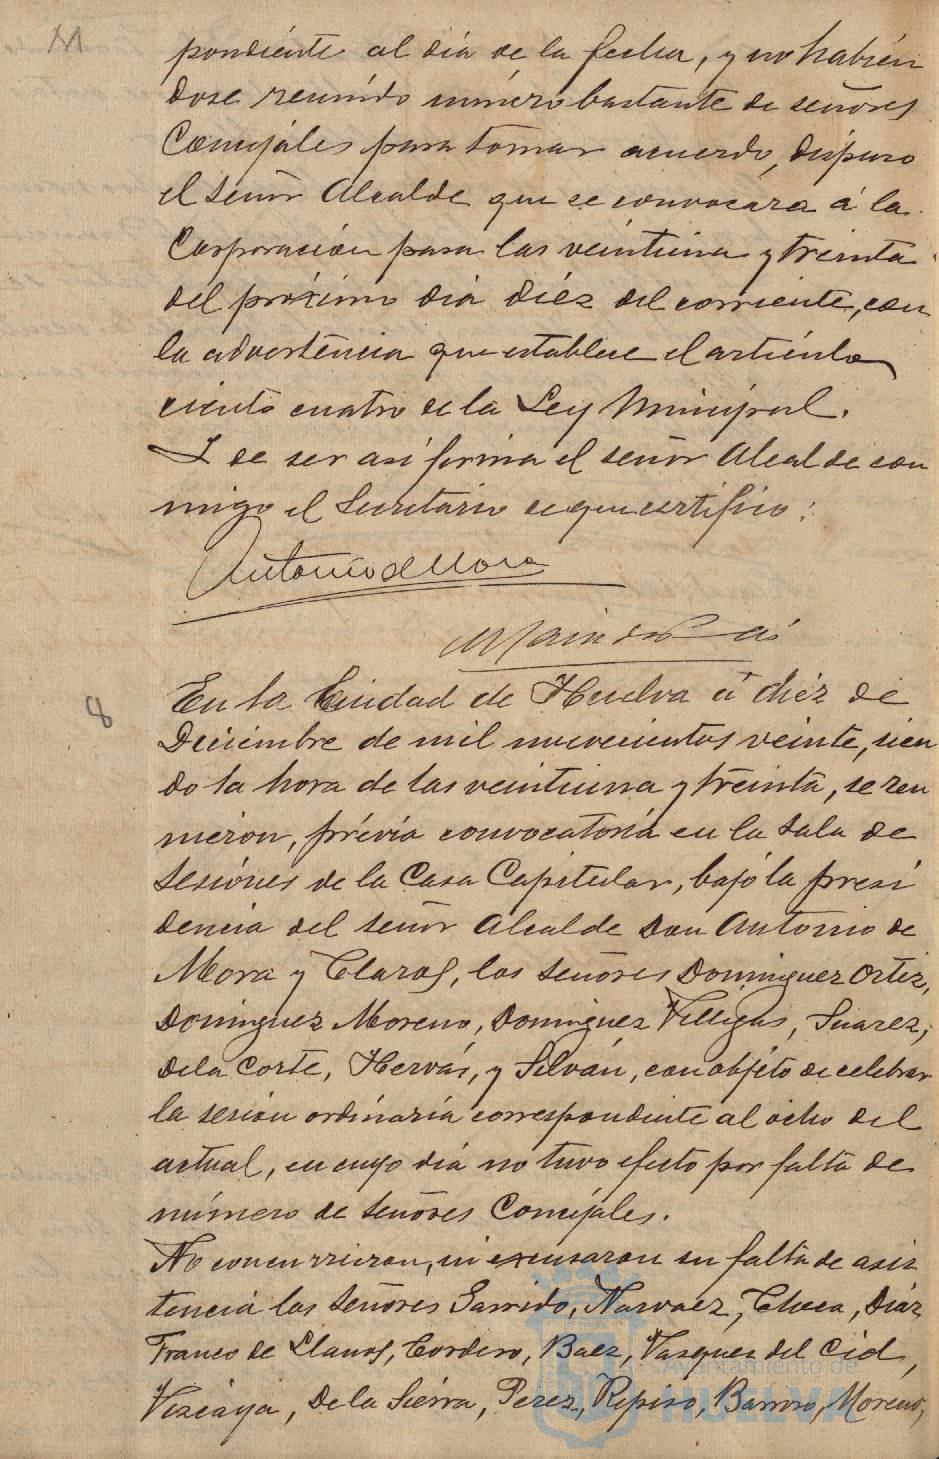 pondiente al dia de la fecha, y no habien
dose reunido número bastante de señores
Concejales para tomar acuerdo, dispuso
el señor Alcalde que se convocara á la
Corporación para las veintiuna y treinta
del próximo dia diéz del corriente, con
la advertencia que establece el artículo
ciento cuatro de la Ley Municipal.
Y de ser asi firma el señor Alcalde con
migo el Secretario de que certifico:
Antonio de Mora
8
En la Ciudad de Huelva á diéz de
Diciembre de mil novecientos veinte, sien
do la hora de las veintiuna y treinta, se reu
nieron, prévia convocatoria en la Sala de
Sesiones de la Casa Capitular, bajo la presi
dencia del señor Alcalde Don Antonio de
Mora y Claros, los señores Dominguez Ortiz,
Dominguez Moreno, Dominguez Villegas, Suarez,
De la Corte, Hervás, y Silván, con objéto de celebrar
la sesión ordinaria correspondiente al ocho del
actual, en cuyo dia no tuvo efecto por falta de
número de señores Concejales.
No concurrieron, ni excusaron su falta de asis
tencia los señores Garrido, Narvaez, Checa, Diaz
Franco de Llanos, Cordero, Baez, Vasquez del Cid,
Vizcaya, De la Sierra, Perez, Repiso, Barroso, Moreno,
Ayuntamiento de
HUELVA